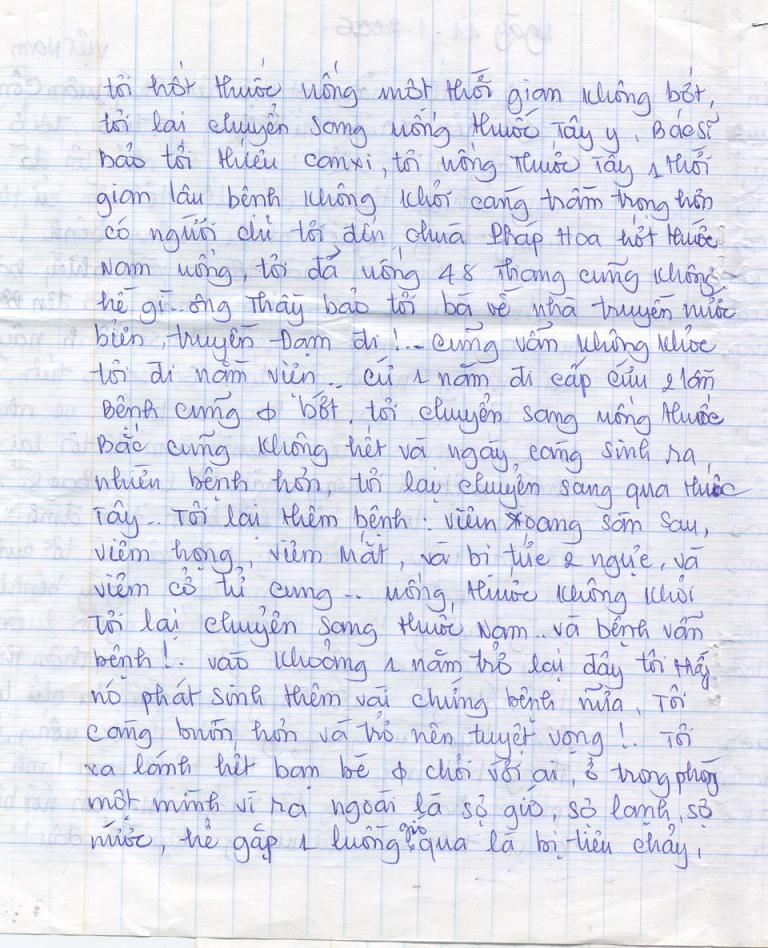 tôi hốt thuốc uống một thời gian không bớt,
tôi lại chuyển sang uống thuốc Tây y. Bác sĩ
Bảo tôi thiếu canxi, tôi uống Thuốc Tây 1 thời
gian lâu bệnh không khỏi càng trầm trọng hơn
có người chỉ tôi đến chùa Pháp Hoa hốt thuốc
Nam uống, tôi đã uống 48 Thang cũng không
hề gì... ông Thầy bảo tôi bà về nhà truyền nước
biển, truyền Đạm đi !.. cũng vẫn không khỏe
tôi đi nằm viện.. cứ 1 năm đi cấp cứu 2 lần
Bệnh cũng φ bớt. tôi chuyển sang uống thuốc
Bắc cũng không hết và ngày càng sinh ra,
nhiều bệnh hơn, tôi lại chuyển sang qua thuốc
Tây.. Tôi lại thêm bệnh : viêm xoang sầm sau,
viêm họng, viêm mắt, và bị tức 2 ngực, và
viêm cổ tử cung .. uống, thuốc không khỏi
Tôi lại chuyển sang thuốc Nam.. và bệnh vẫn
bệnh !. vào khoảng 1 năm trở lại đây tôi thấy
nó phát sinh thêm vài chứng bệnh nữa, Tôi
càng buồn hơn và trở nên tuyệt vọng !. Tôi
xa lánh hết bạn bè φ chơi với ai, ở trong phòng
một mình vì ra ngoài là sợ gió, sợ lạnh, sợ
nước, hể gặp 1 luồng gió qua là bị tiêu chảy,